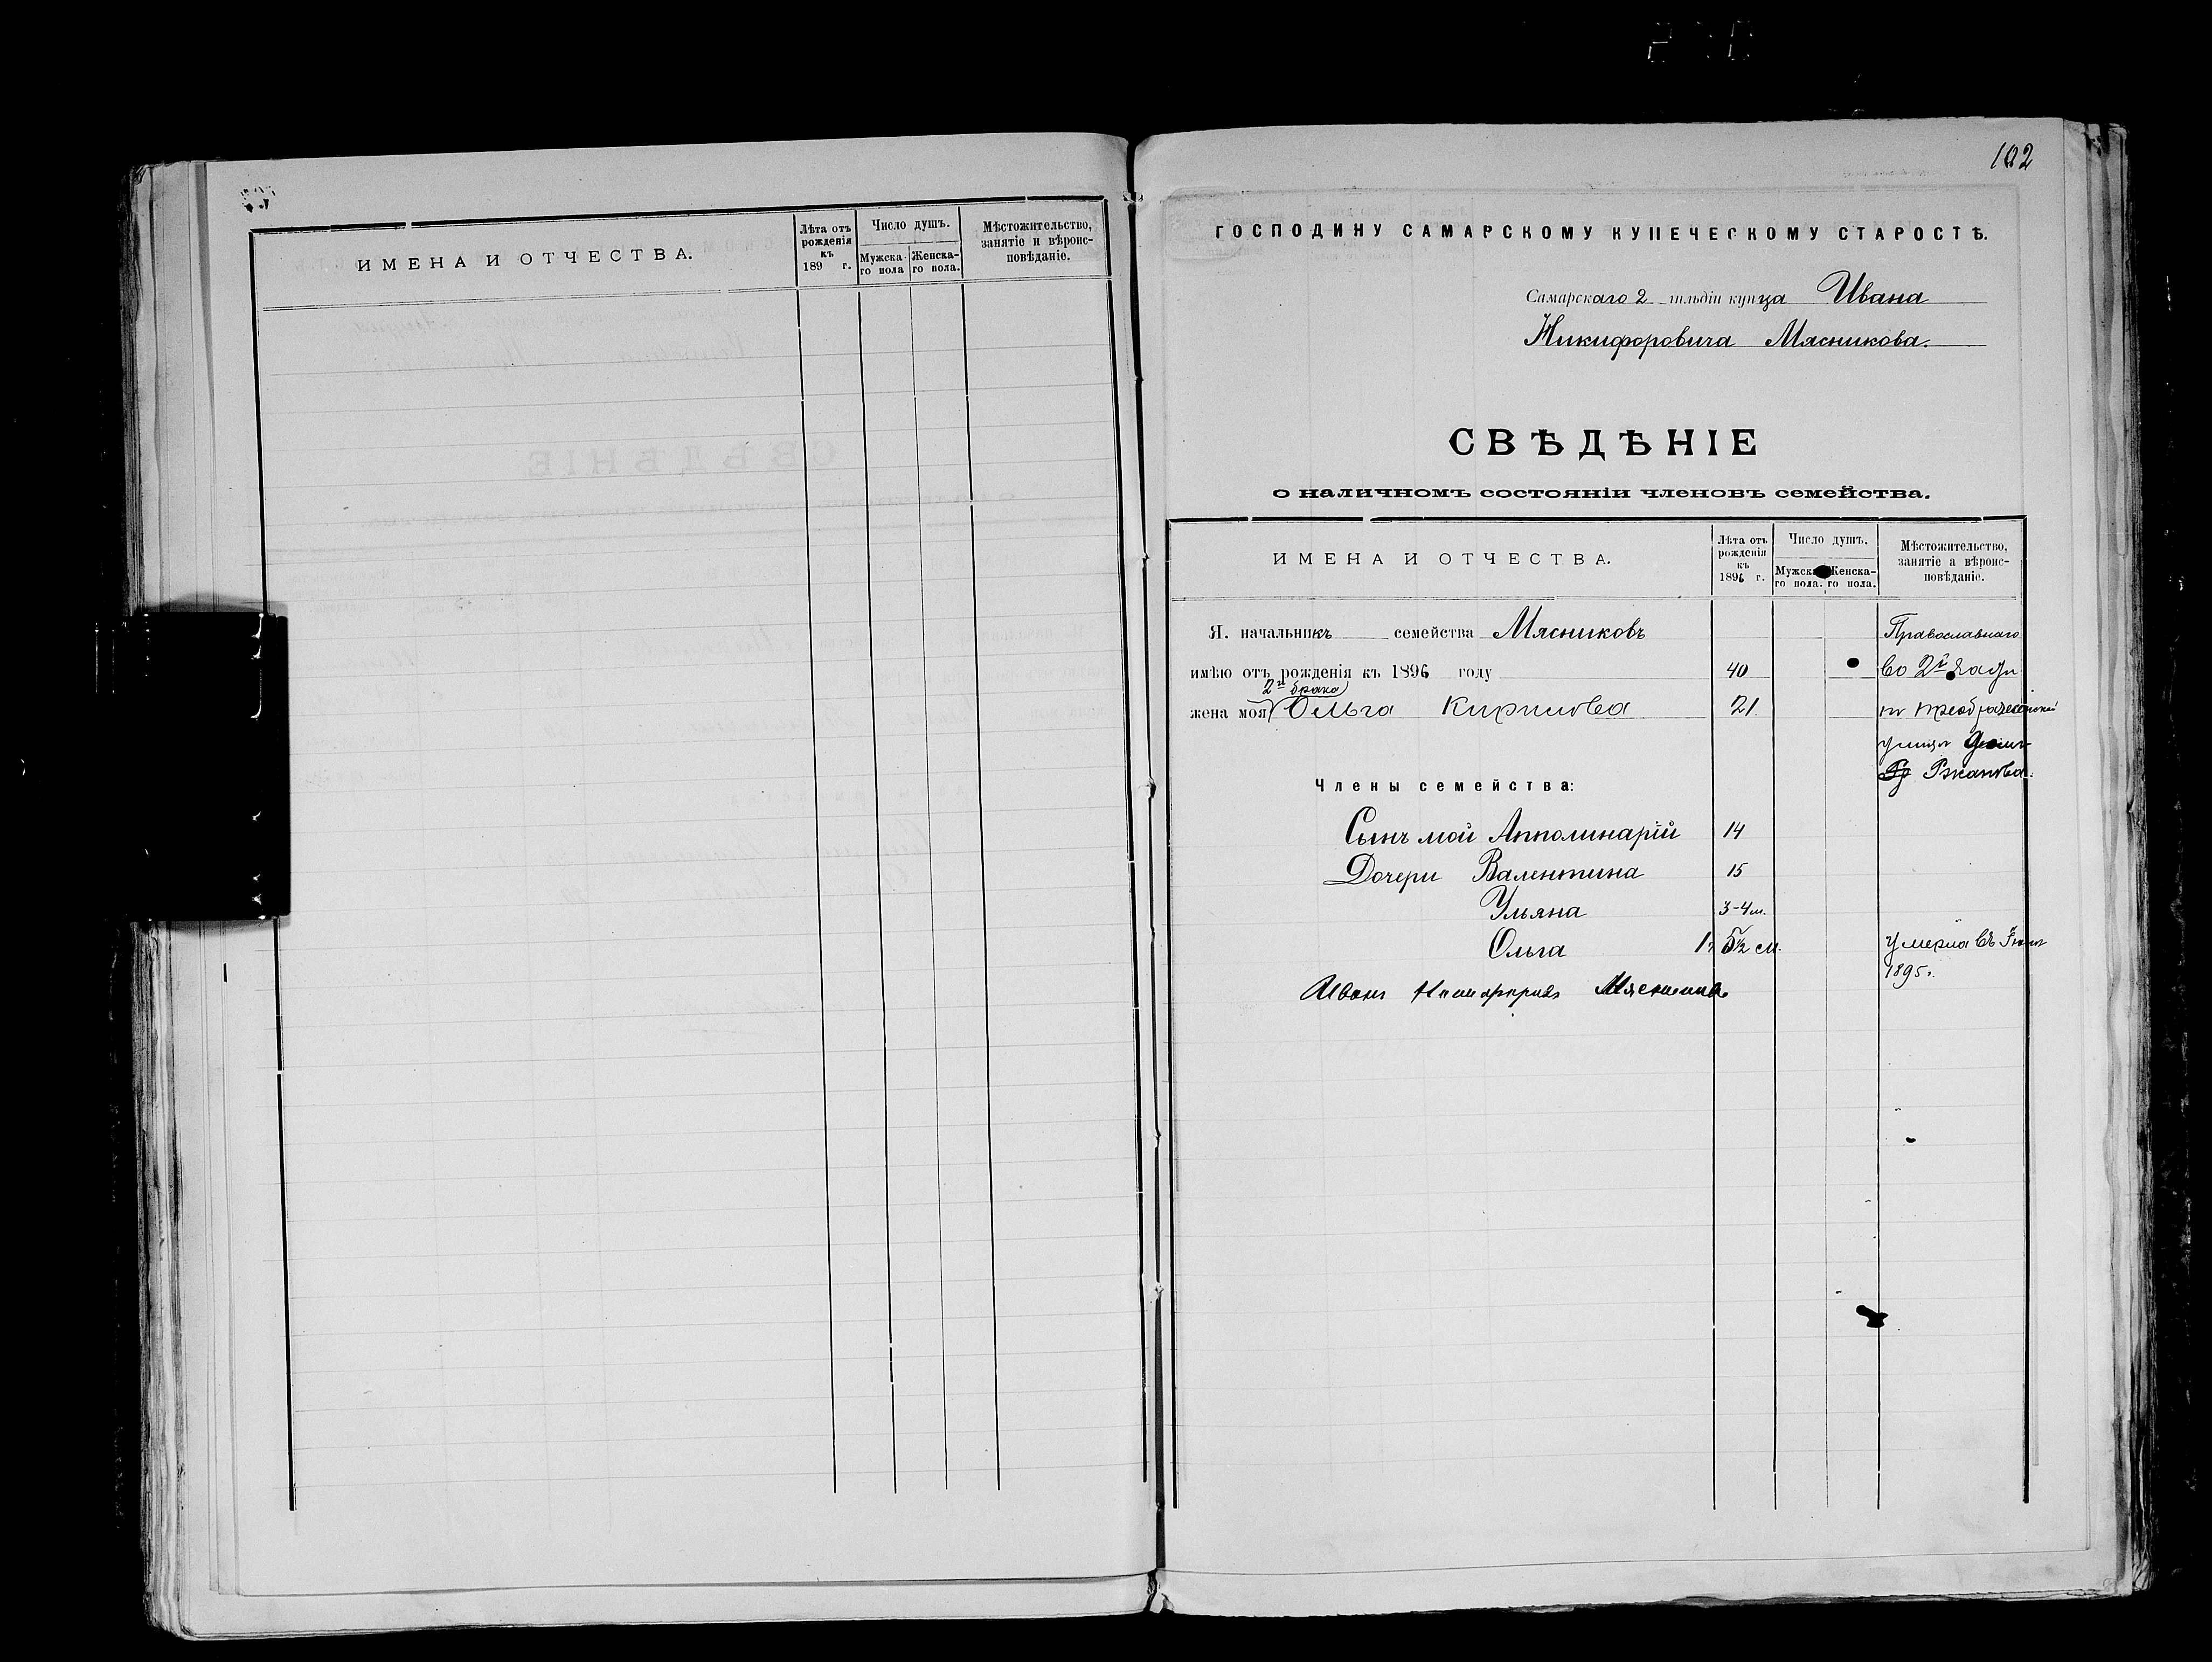 ИМЕНА И ОТЧЕСТВА.
Лѣта отъ рожденія къ 189 г.
Число душъ.
Мужска-го пола
Женска-го пола.
Мѣстожительство, занятіе и вѣроис-повѣданіе.
102
ГОСПОДИНУ САМАРСКОМУ КУПЕЧЕСКОМУ СТАРОСТѢ.
Самарскаго 2 гильдіи купца Ивана
Никифоровича Мясникова.
СВѢДѢНІЕ
о наличномъ состояніи членовъ семейства.
ИМЕНА И ОТЧЕСТВА.
Лѣта отъ рожденія къ 1896 г.
Число душъ.
Мужска-го пола.
Женска-го пола.
Мѣстожительство, занятіе а вѣроис-повѣданіе.
Я. начальникъ семейства Мясниковъ Православнаго
имѣю отъ рожденія къ 1896 году 40 во 2й части
2го брака
жена моя Ольга Кирилова 21. по преображенской
улицѣ домъ
Ржанова.
Члены семейства:
Сынъ мой Апполинарій 14
Дочери Валентина 15
Ульяна 3-4 м.
Ольга 1 г. 5½ м. умерла въ
1895 г.
Иванъ Никифоровъ Мясниковъ